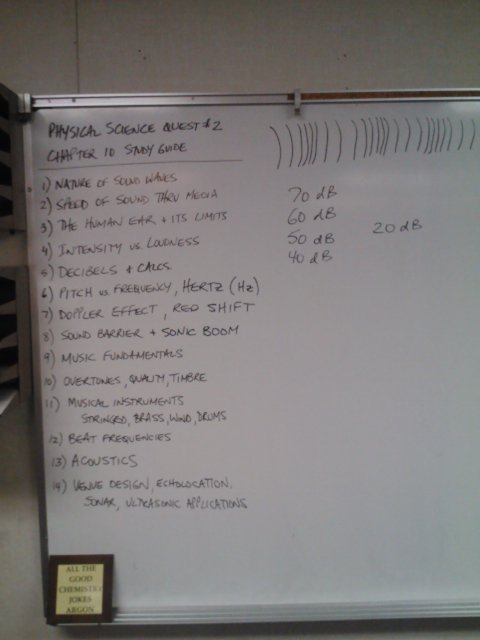 PHYSICAL SCIENCE QUEST #2
CHAPTER 10 STUDY GUIDE
1) NATURE OF SOUND WAVES
2) SPEED OF SOUND THRU MEDIA
3) THE HUMAN EAR + ITS LIMITS
4) INTENSITY vs. LOUDNESS
5) DECIBELS + CALCS.
6) PITCH vs. FREQUENCY, HERTZ (Hz)
7) DOPPLER EFFECT, RED SHIFT
8) SOUND BARRIER + SONIC BOOM
9) MUSIC FUNDAMENTALS
10) OVERTONES, QUALITY, TIMBRE
11) MUSICAL INSTRUMENTS
STRINGED, BRASS, WIND, DRUMS
12) BEAT FREQUENCIES
13) ACOUSTICS
14) VENUE DESIGN, ECHOLOCATION,
SONAR, ULTRASONIC APPLICATIONS
70 dB
60 dB
50 dB
40 dB
20 dB
ALL THE
GOOD
CHEMISTRY
JOKES
ARGON